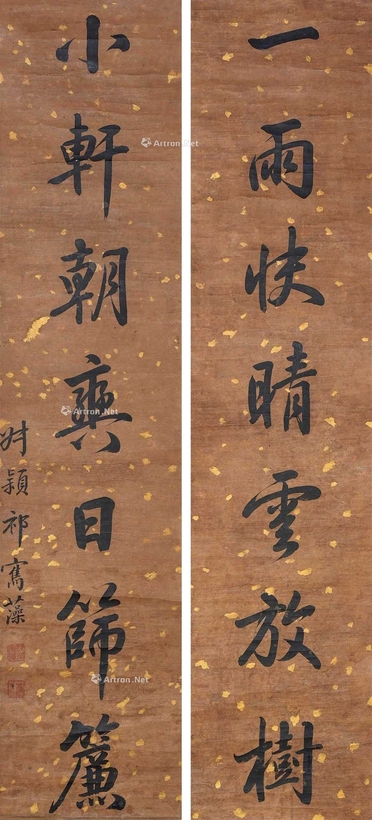 一雨快晴雲放樹
小軒朝爽日篩簾
叔穎祁寯藻
Artron.Net
Artron.Net
Artron.Net